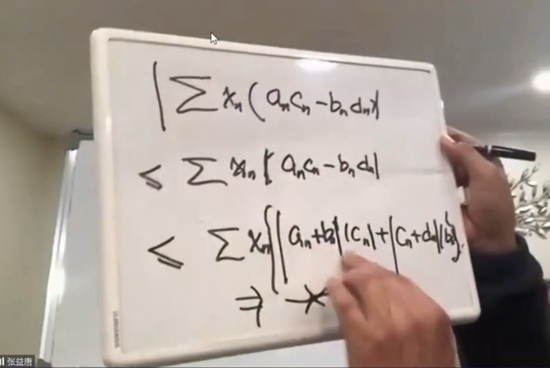 | ∑ xₙ (aₙcₙ − bₙdₙ)|
≤ ∑ xₙ |aₙcₙ − bₙdₙ|
≤ ∑ xₙ{|aₙ+bₙ||cₙ|+|cₙ+dₙ||bₙ|}.
⇒ ⚹
张益唐